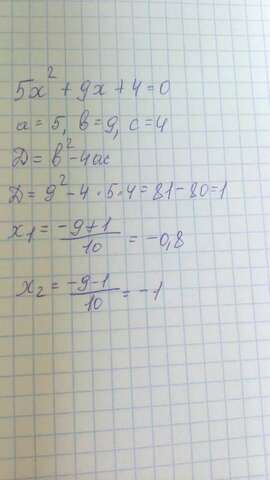 5x² + 9x + 4 = 0
a = 5, b = 9, c = 4
D = b² - 4ac
D = 9² - 4 · 5 · 4 = 81 - 80 = 1
x₁ = (-9+1)/10 = -0,8
x₂ = (-9-1)/10 = -1